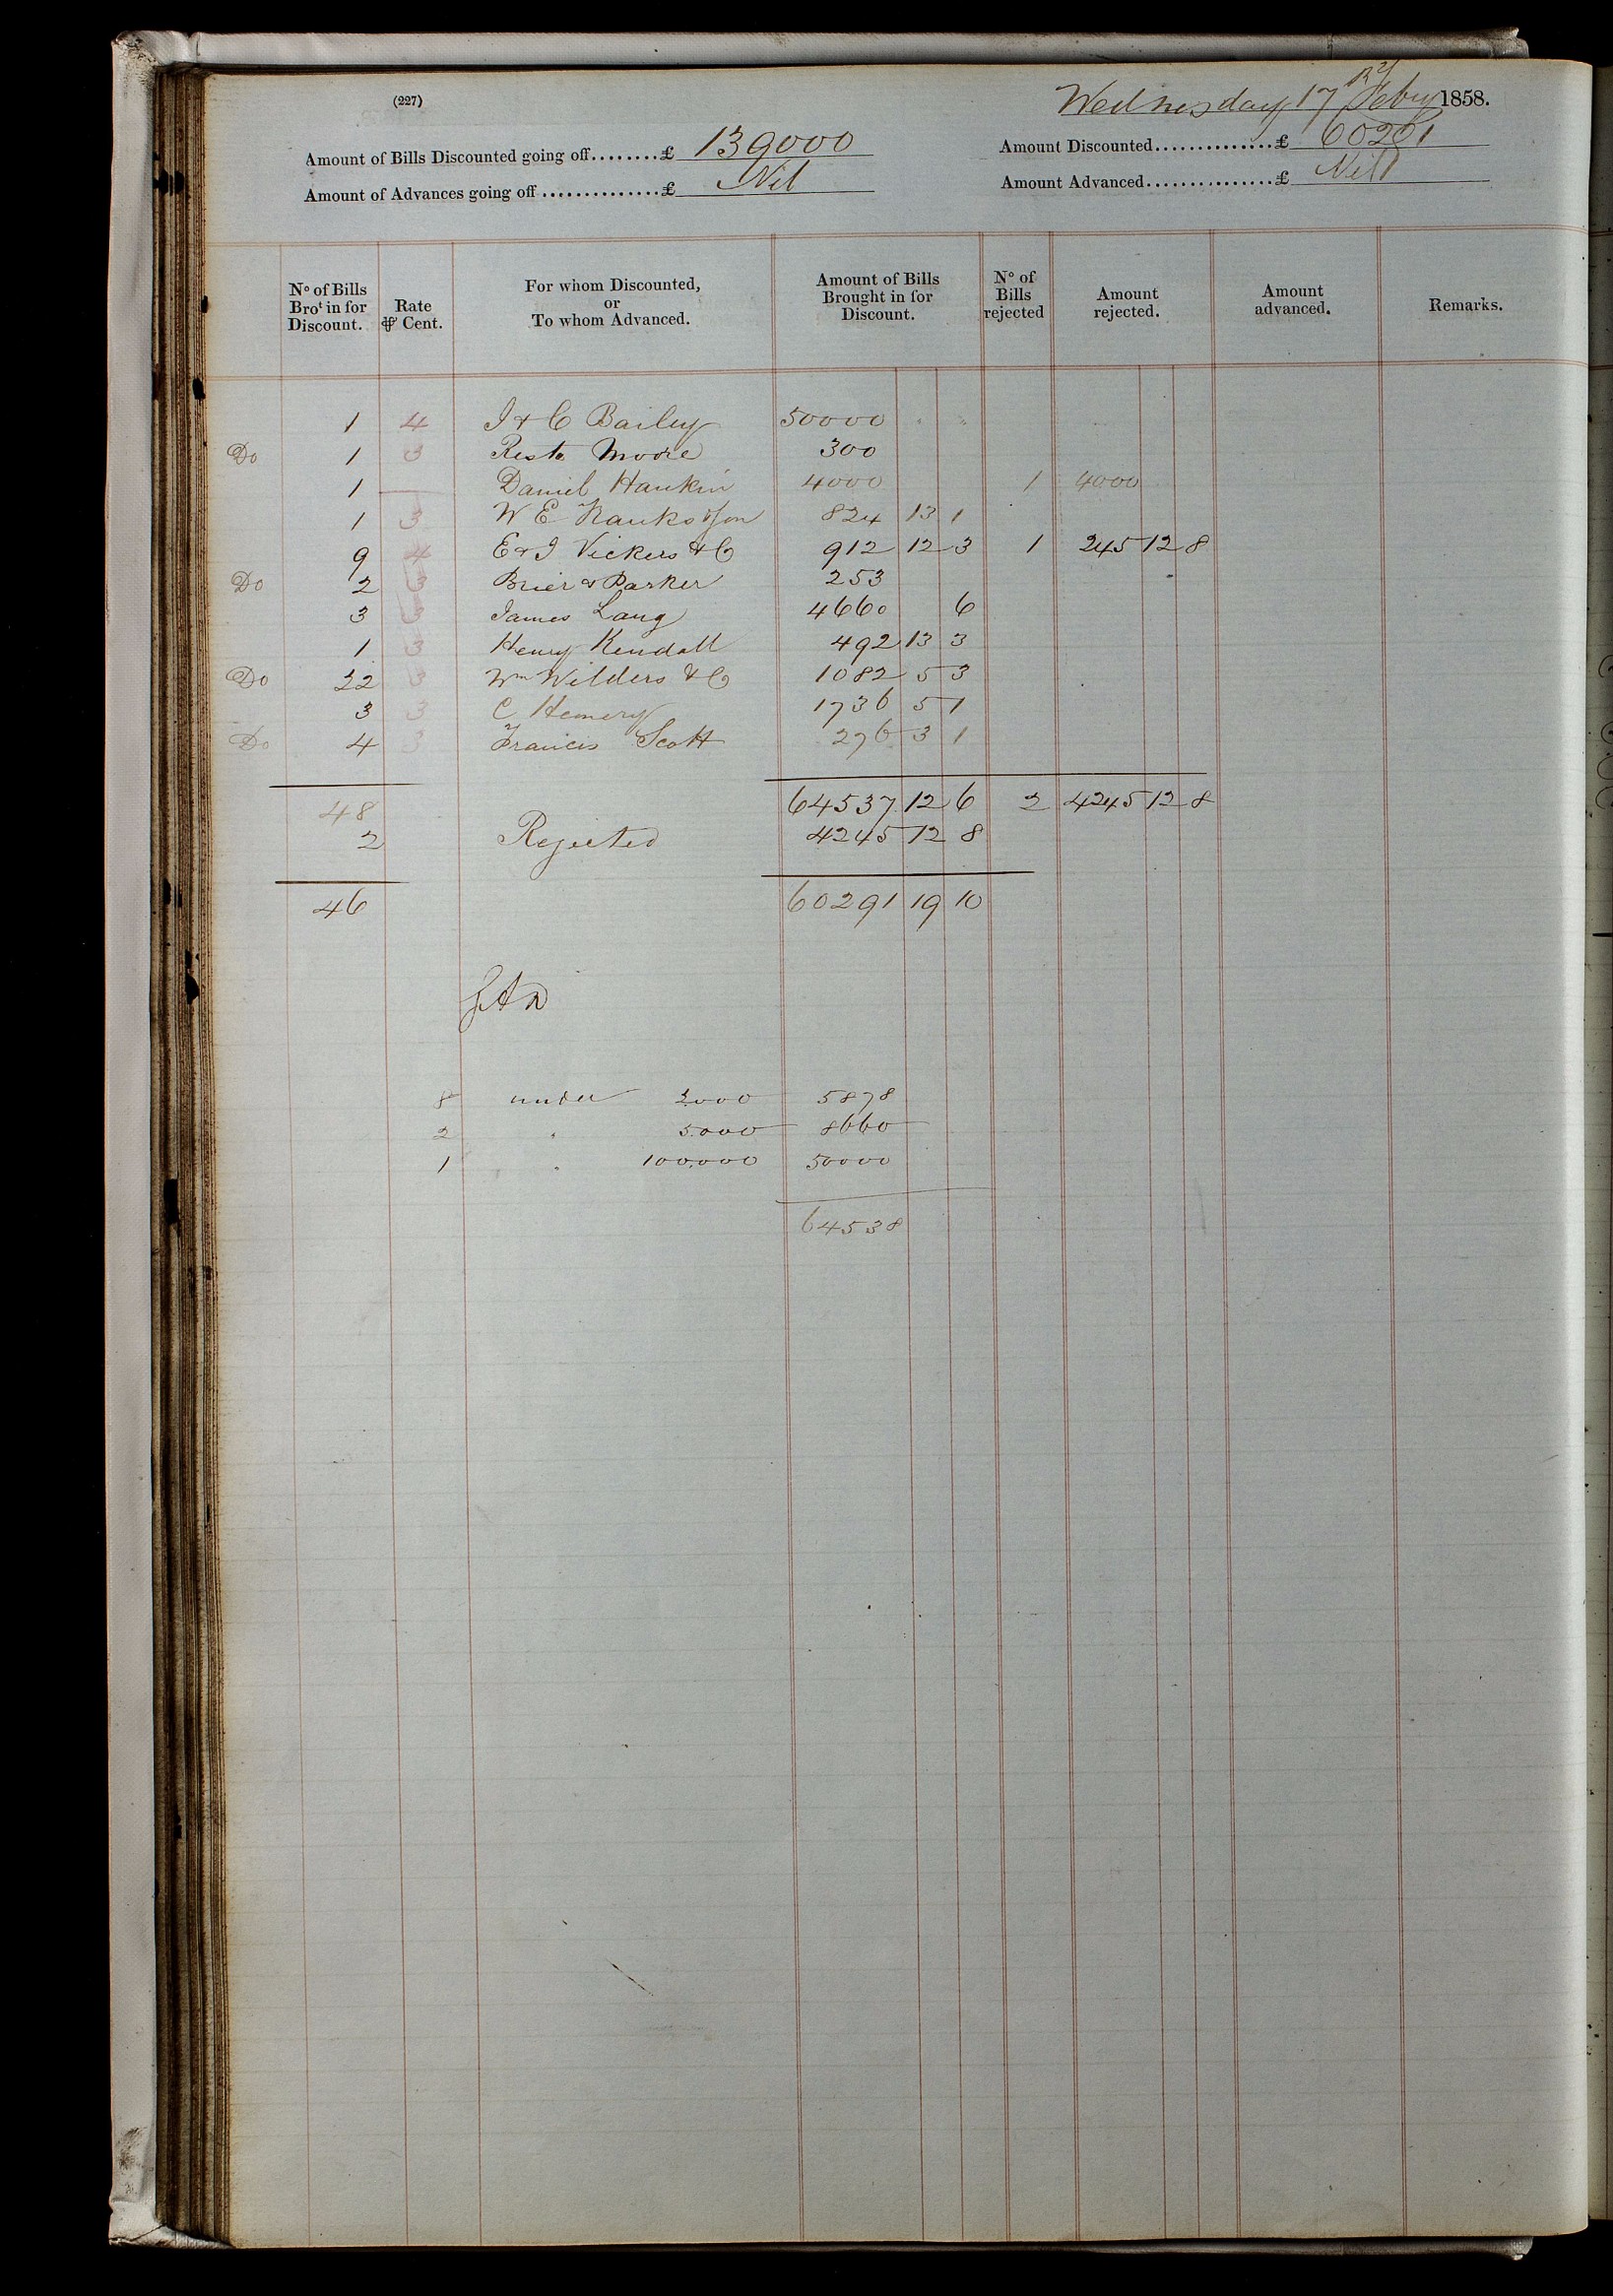 (227)
Wednesday 17 Feby 1858.
Amount of Bills Discounted going off........£ 139000
Amount Discounted..............£ 60291
Amount of Advances going off..............£ Nil
Amount Advanced...............£ Nil
No of Bills Brot in for Discount. Rate ⅌ Cent. For whom Discounted, or To whom Advanced. Amount of Bills Brought in for Discount. No of Bills rejected Amount rejected. Amount advanced. Remarks.
1 4 I & C Bailey 50000 " "
Do 1 3 Moore 300
1 — Daniel Hankin 4000 1 4000
1 3 W E & Son 824 13 1
9 4 E & I Vickers & Co 912 12 3 1 245 12 8
Do 2 3 Brier & Parker 253
3 3 James Lang 4660 6
1 3 Henry Kendall 492 13 3
Do 22 3 Wm Wilders & Co 1082 5 3
3 3 C Hemery 1736 5 1
Do 4 3 Francis Scott 276 3 1
48 64537 12 6 2 4245 12 8
2 Rejected 4245 12 8
46 60291 19 10
8 under 2000 5878
2 " 5000 8660
1 " 100,000 50000
64538